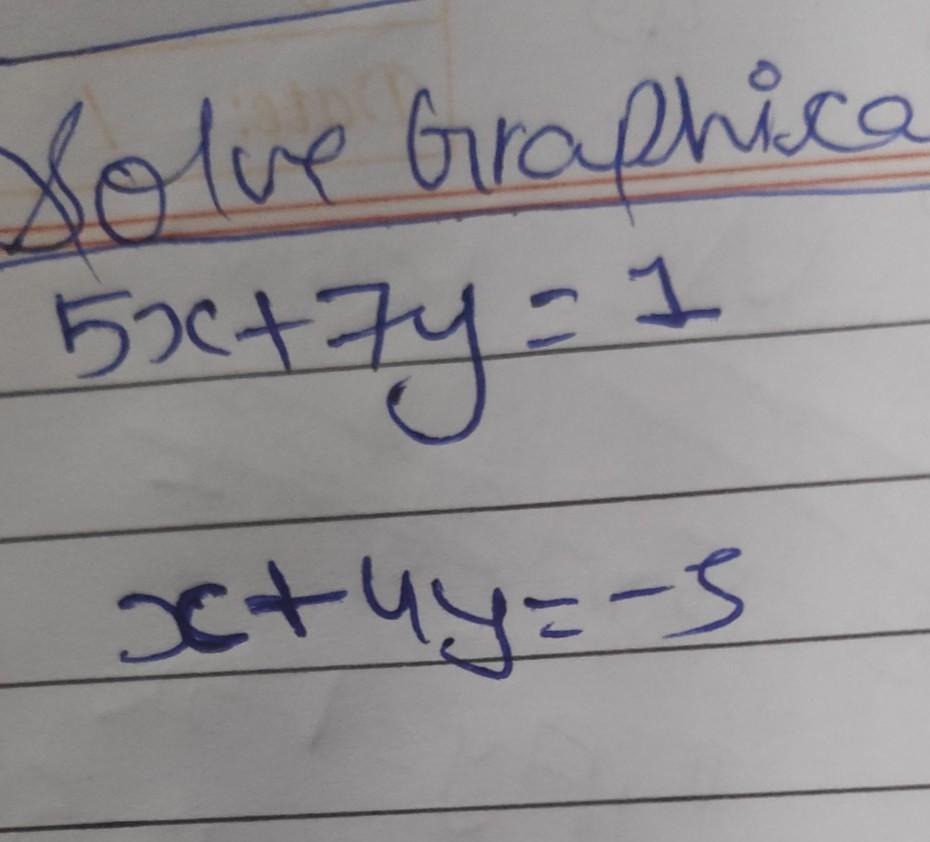 Solve Graphica
5x+7y=1
x+4y=-5